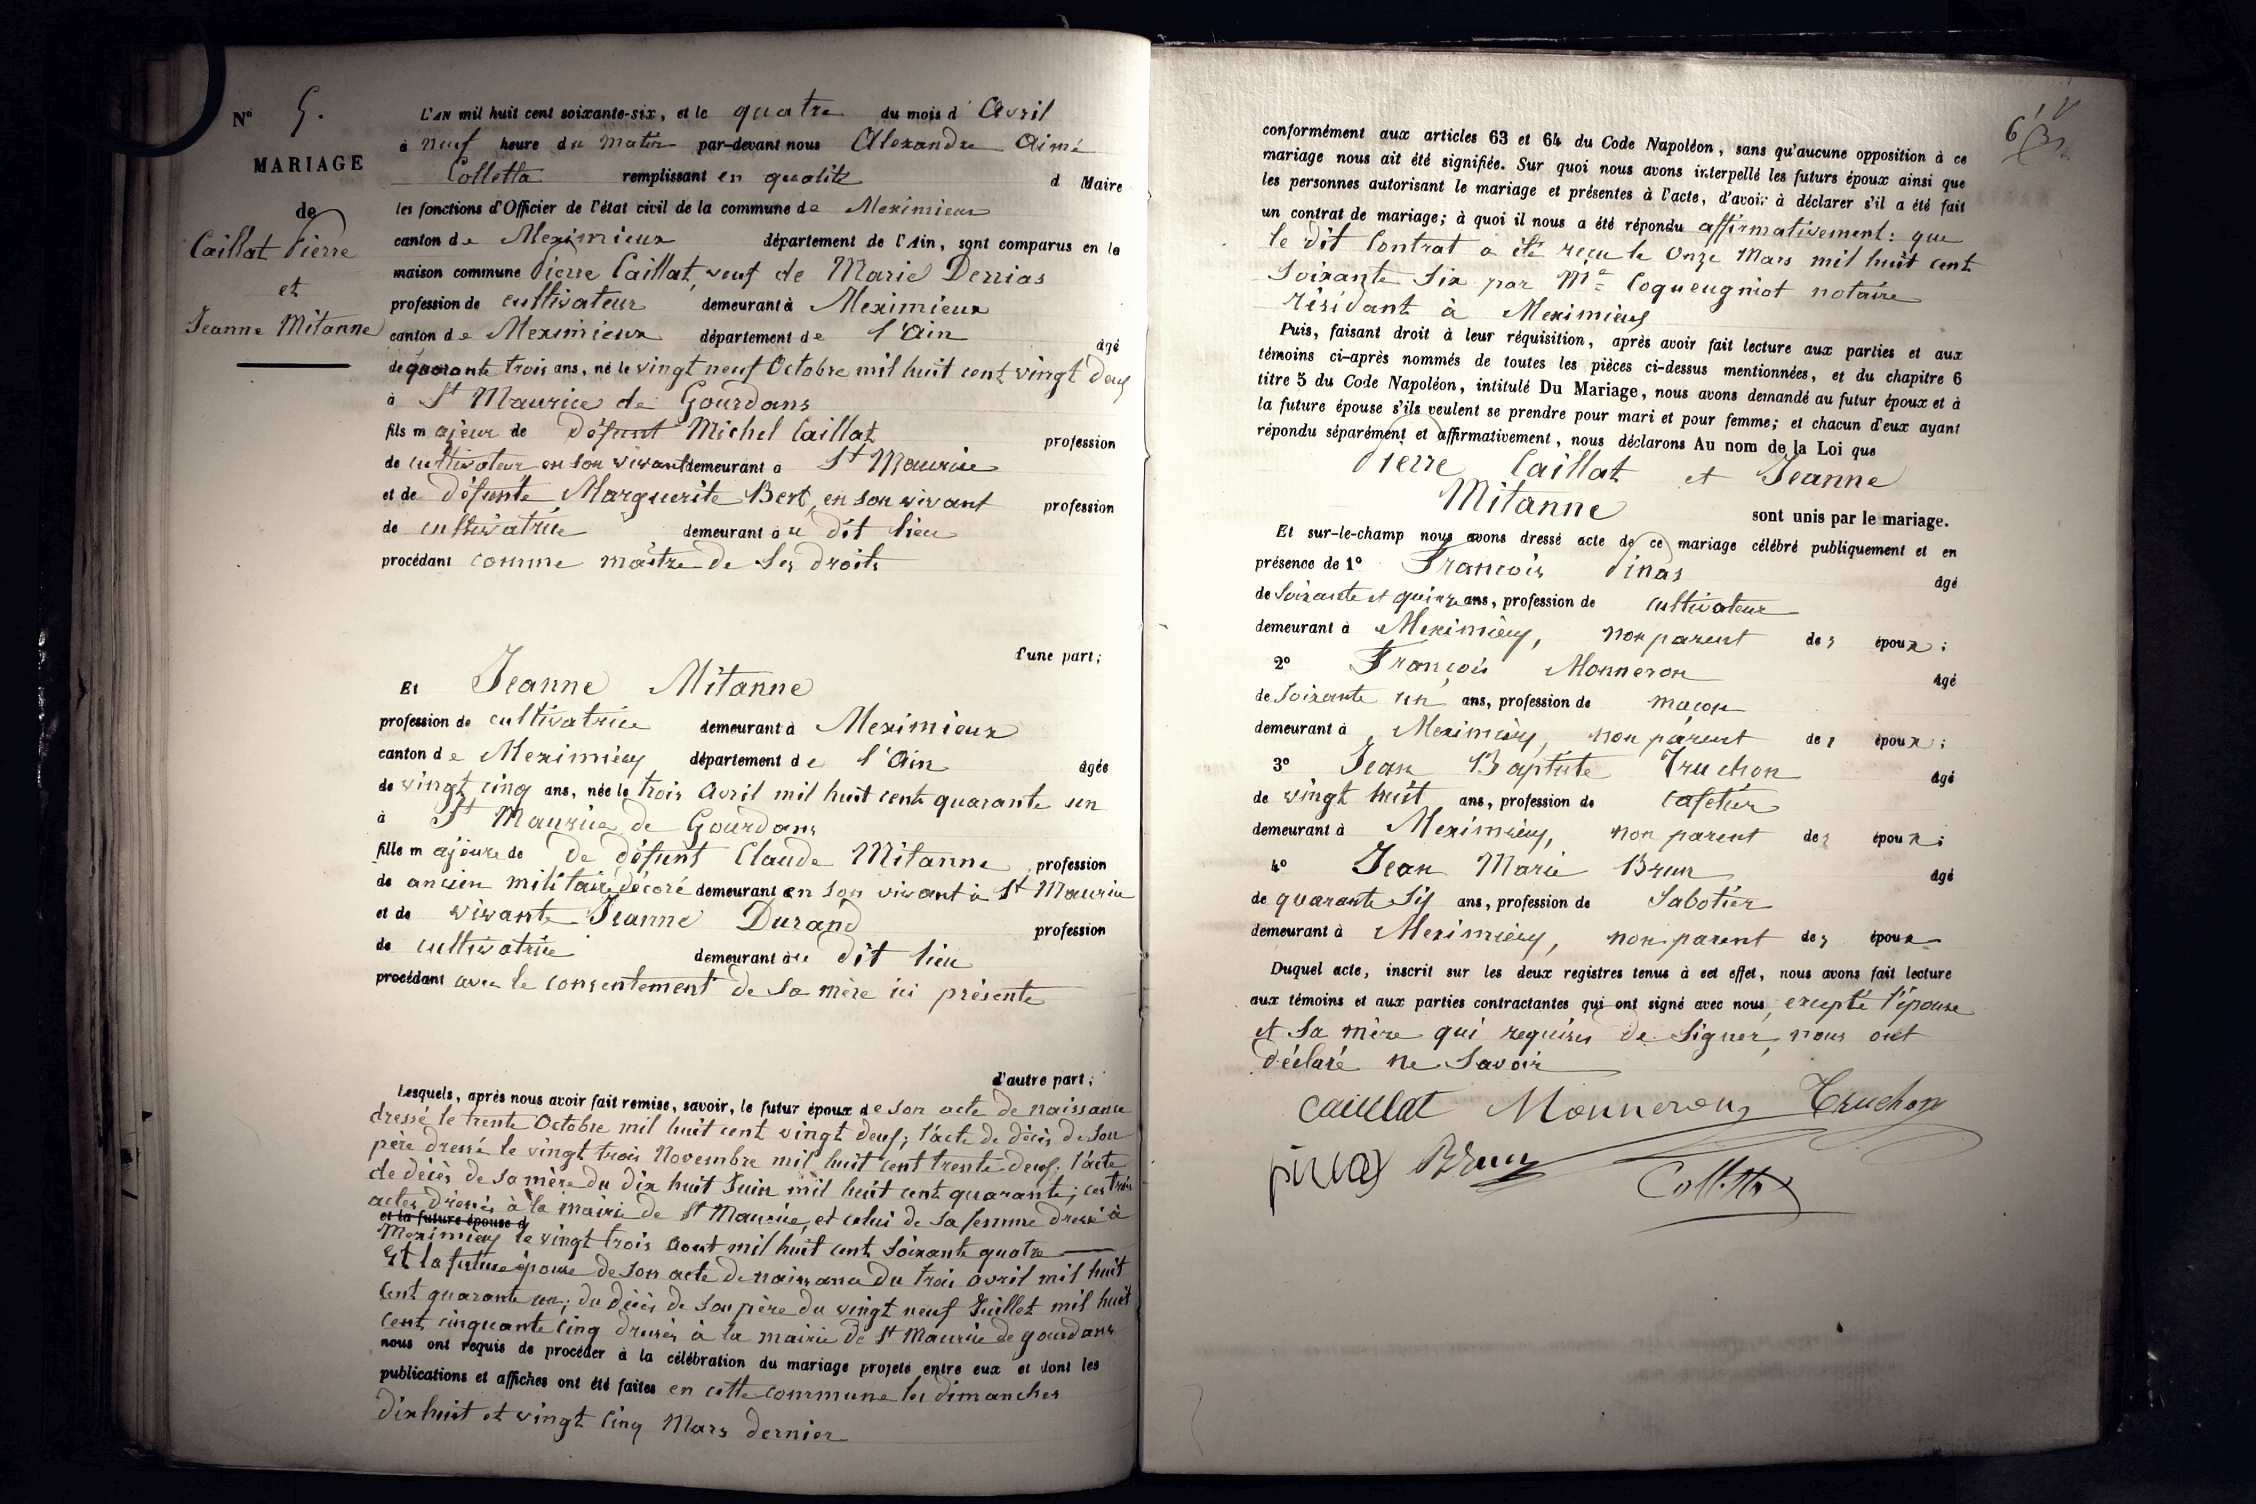 N° 5.
MARIAGE
de
Caillat Pierre
et
Jeanne Mitanne
L'AN mil huit cent soixante-six, et le quatre du mois d'Avril
à neuf heure du matin par-devant nous Alexandre Aimé
Colletta remplissant en qualité d Maire
les fonctions d'Officier de l'état civil de la commune de Meximieux
canton de Meximieux département de l'Ain, sont comparus en la
maison commune Pierre Caillat, veuf de Marie Derrias
profession de cultivateur demeurant à Meximieux
canton de Meximieux département de l'Ain âgé
de quarante trois ans, né le vingt neuf Octobre mil huit cent vingt deux
à St Maurice de Gourdans
fils majeur de Défunt Michel Caillat profession
de cultivateur en son vivant demeurant à St Maurice
et de défunte Marguerite Bert, en son vivant profession
de cultivatrice demeurant au dit lieu
procédant comme maître de ses droits
d'une part;
Et Jeanne Mitanne
profession de cultivatrice demeurant à Meximieux
canton de Meximieux département de l'Ain âgée
de vingt cinq ans, née le trois Avril mil huit cent quarante un
à St Maurice de Gourdans
fille majeure de de défunt Claude Mitanne profession
de ancien militaire décoré demeurant en son vivant à St Maurice
et de vivante Jeanne Durand profession
de cultivatrice demeurant au dit lieu
procédant avec le consentement de sa mère ici présente
d'autre part;
Lesquels, après nous avoir fait remise, savoir, le futur époux de son acte de naissance
dressé le trente Octobre mil huit cent vingt deux; l'acte de décès de son
père dressé le vingt trois Novembre mil huit cent trente deux; l'acte
de décès de sa mère du dix huit Juin mil huit cent quarante; ces trois
actes dressés à la mairie de St Maurice, et celui de sa femme dressé à
et la future épouse d
Meximieux le vingt trois Aout mil huit cent soixante quatre
Et la future épouse de son acte de naissance du trois avril mil huit
cent quarante un; du décès de son père du vingt neuf Juillet mil huit
cent cinquante cinq dressés à la mairie de St Maurice de gourdans
nous ont requis de procéder à la célébration du mariage projeté entre eux et dont les
publications et affiches ont été faites en cette commune les dimanches
dix huit et vingt cinq Mars dernier
6
conformément aux articles 63 et 64 du Code Napoléon, sans qu'aucune opposition à ce
mariage nous ait été signifiée. Sur quoi nous avons interpellé les futurs époux ainsi que
les personnes autorisant le mariage et présentes à l'acte, d'avoir à déclarer s'il a été fait
un contrat de mariage; à quoi il nous a été répondu affirmativement: que
le dit Contrat a été reçu le Onze Mars mil huit cent
soixante six par Me Coqueugniot notaire
résidant à Meximieux
Puis, faisant droit à leur réquisition, après avoir fait lecture aux parties et aux
témoins ci-après nommés de toutes les pièces ci-dessus mentionnées, et du chapitre 6
titre 5 du Code Napoléon, intitulé Du Mariage, nous avons demandé au futur époux et à
la future épouse s'ils veulent se prendre pour mari et pour femme; et chacun d'eux ayant
répondu séparément et affirmativement, nous déclarons Au nom de la Loi que
Pierre Caillat et Jeanne
Mitanne sont unis par le mariage.
Et sur-le-champ nous avons dressé acte de ce mariage célébré publiquement et en
présence de 1° François Pinas âgé
de soixante et quinze ans, profession de cultivateur
demeurant à Meximieux, non parent des époux;
2° François Monneron âgé
de soixante un ans, profession de maçon
demeurant à Meximieux, non parent des époux;
3° Jean Baptiste Truchon âgé
de vingt huit ans, profession de cafetier
demeurant à Meximieux, non parent des époux;
4° Jean Marie Brun âgé
de quarante six ans, profession de sabotier
demeurant à Meximieux, non parent des époux
Duquel acte, inscrit sur les deux registres tenus à cet effet, nous avons fait lecture
aux témoins et aux parties contractantes qui ont signé avec nous, excepté l'épouse
et sa mère qui requises de signer, nous ont
déclaré ne savoir
Caillat Monneron Truchon
pinas Brun Colletta